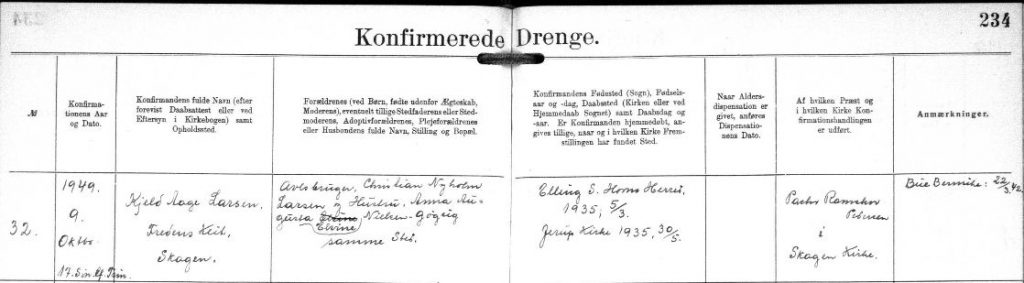 234
Konfirmerede Drenge.
№
Konfirma-
tionens Aar
og Dato.
Konfirmandens fulde Navn (efter
forevist Daabsattest eller ved
Eftersyn i Kirkebogen) samt
Opholdssted.
Forældrenes (ved Børn, fødte udenfor Ægteskab,
Moderens), eventuelt tillige Stedfaderens eller Sted-
moderens, Adoptivforældrenes, Plejeforældrenes
eller Husbondens fulde Navn, Stilling og Bopæl.
Konfirmandens Fødested (Sogn), Fødsels-
aar og -dag, Daabssted (Kirken eller ved
Hjemmedaab Sognet) samt Daabsdag og
-aar. Er Konfirmanden hjemmedøbt, an-
gives tillige, naar og i hvilken Kirke Frem-
stillingen har fundet Sted.
Naar Alders-
dispensation er
givet, anføres
Dispensatio-
nens Dato.
Af hvilken Præst og
i hvilken Kirke Kon-
firmationshandlingen
er udført.
Anmærkninger.
32.
1949.
9.
Oktbr.
17. S. Trin.
Kjeld Aage Larsen,
Fredens
Skagen.
Avlsbruger, Christian Nyholm
Larsen og Hustru, Anna Au-
gusta Elvine Nielsen
samme Sted.
Elling S. Horns Herred,
1935, 5/3.
Jerup Kirke 1935, 30/5.
Pastor
Pedersen
i
Skagen Kirke.
22/3